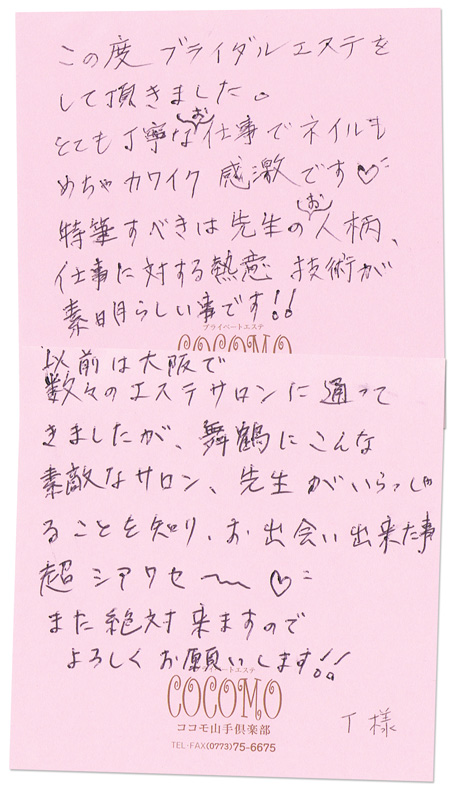 この度 ブライダルエステを
して頂きました。
とても丁寧なお仕事でネイルも
めちゃカワイク 感激です♡
特筆すべきは先生のお人柄、
仕事に対する熱意 技術が
素晴らしい事です!!
プライベートエステ
COCOMO
以前は大阪で
数々のエステサロンに通って
きましたが、舞鶴にこんな
素敵なサロン、先生がいらっしゃ
ることを知り、お出会い出来た事
超シアワセ〜〜♡
また絶対来ますので
よろしくお願いします!!
プライベートエステ
COCOMO
ココモ山手倶楽部
TEL・FAX(0773)75-6675
T様